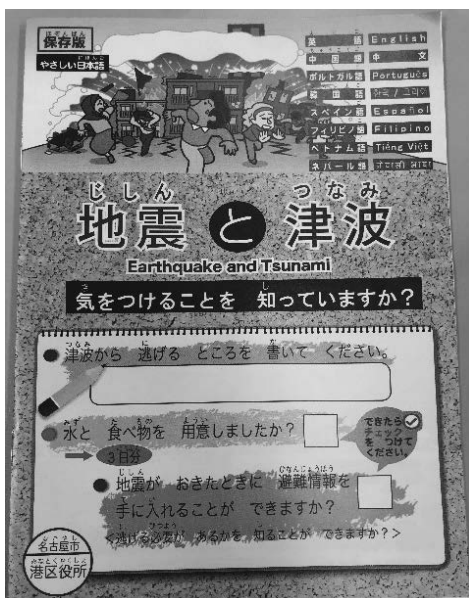 ほぞんばん
保存版
やさしい日本語
英語 English
中国語 中文
ポルトガル語 Português
韓国語
スペイン語 Español
フィリピノ語 Filipino
ベトナム語 Tiếng Việt
ネパール語
じしん つなみ
地震と津波
Earthquake and Tsunami
気をつけることを 知っていますか?
津波から 逃げる ところを 書いて ください。
水と 食べ物を 用意しましたか?
できたら
チェック
を つけて
ください。
3日分
地震が おきたときに 避難情報を
手に入れることが できますか?
<逃げる必要が あるかを 知ることが できますか?>
名古屋市
港区役所